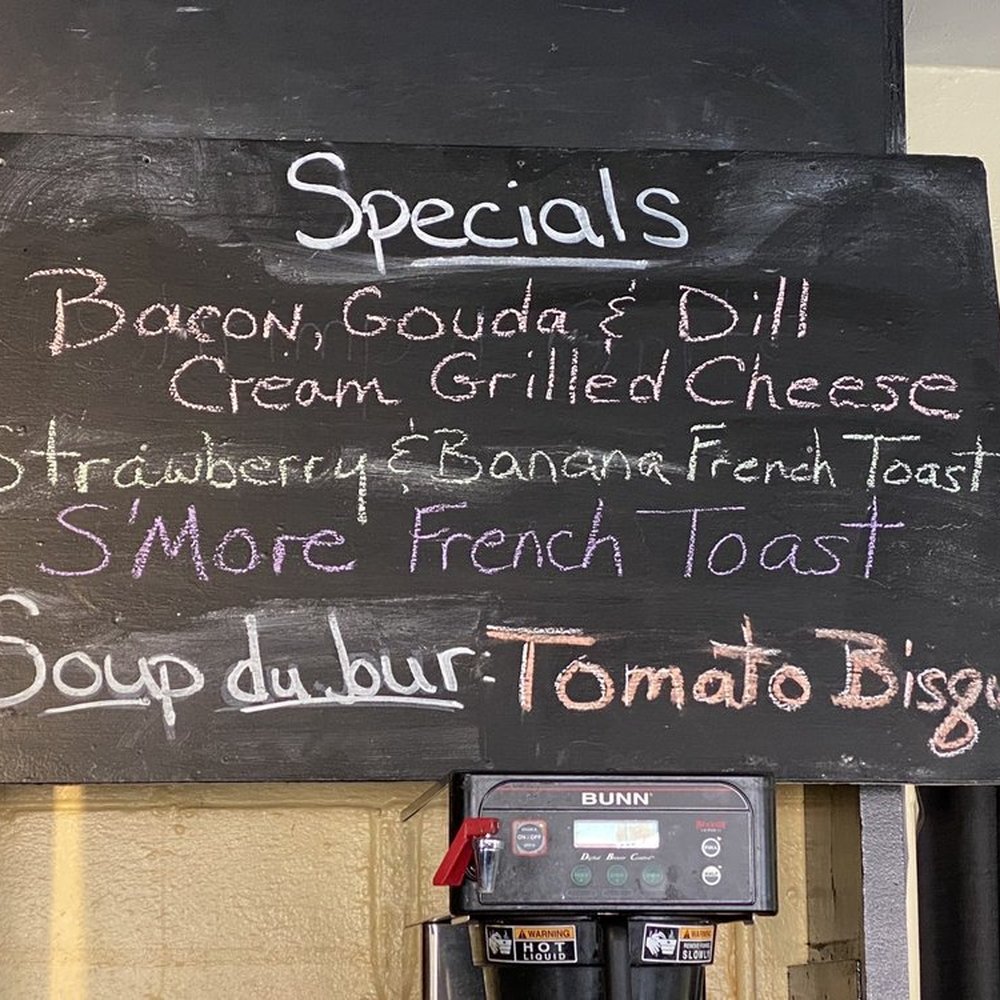 Specials
Bacon, Gouda & Dill
Cream Grilled Cheese
Strawberry & Banana French Toast
S'More French Toast
Soup du bur: Tomato Bisqu
BUNN
ON/OFF
Digital Brewer Control
WARNING WARNING
HOT
LIQUID
SLOWLY